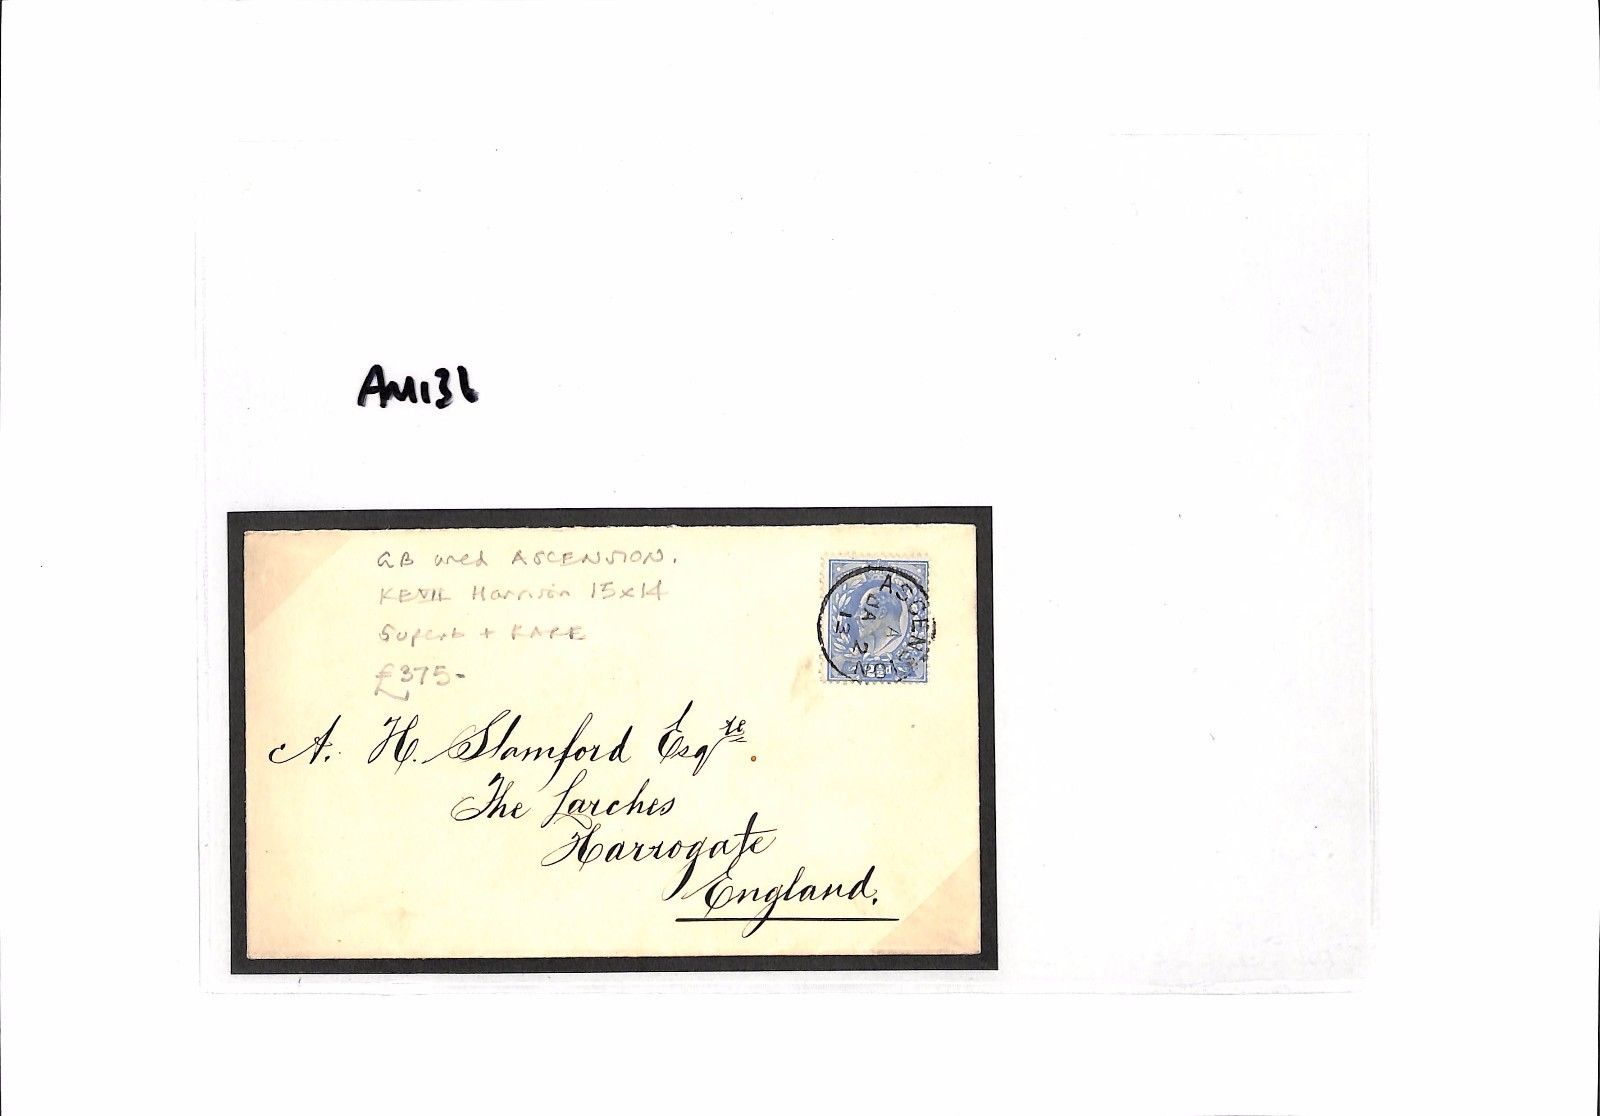 AM136
GB used ASCENSION.
KEVII Harrison 15x14
Superb + RARE
£375-
ASCENSION
A
JA 2
13
2½d
A. H. Stamford Esqre.
The Larches
Harrogate
England.